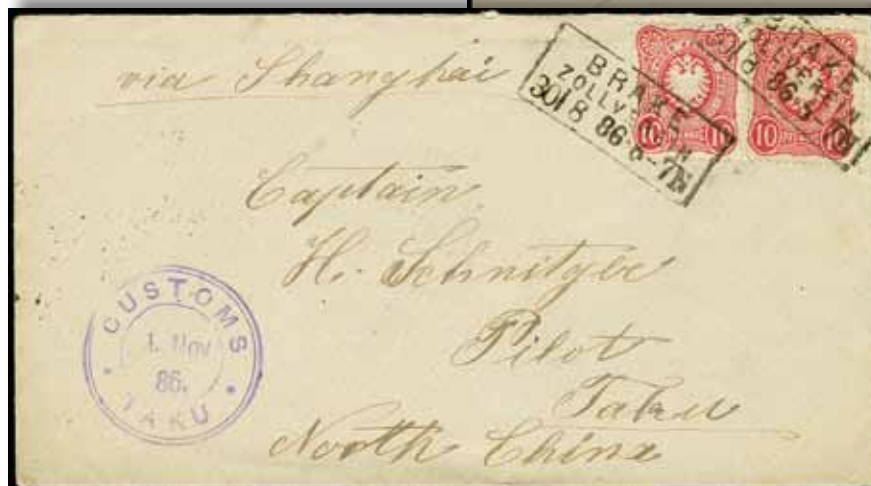 via Shanghai
BRAKE
ZOLLVEREIN
30/8 86·6-7N
BRAKE
ZOLLVEREIN
10 10
10 10
Captain
H. Schnitger
Pilot
Taku
North China
CUSTOMS
1. Nov
86.
TAKU